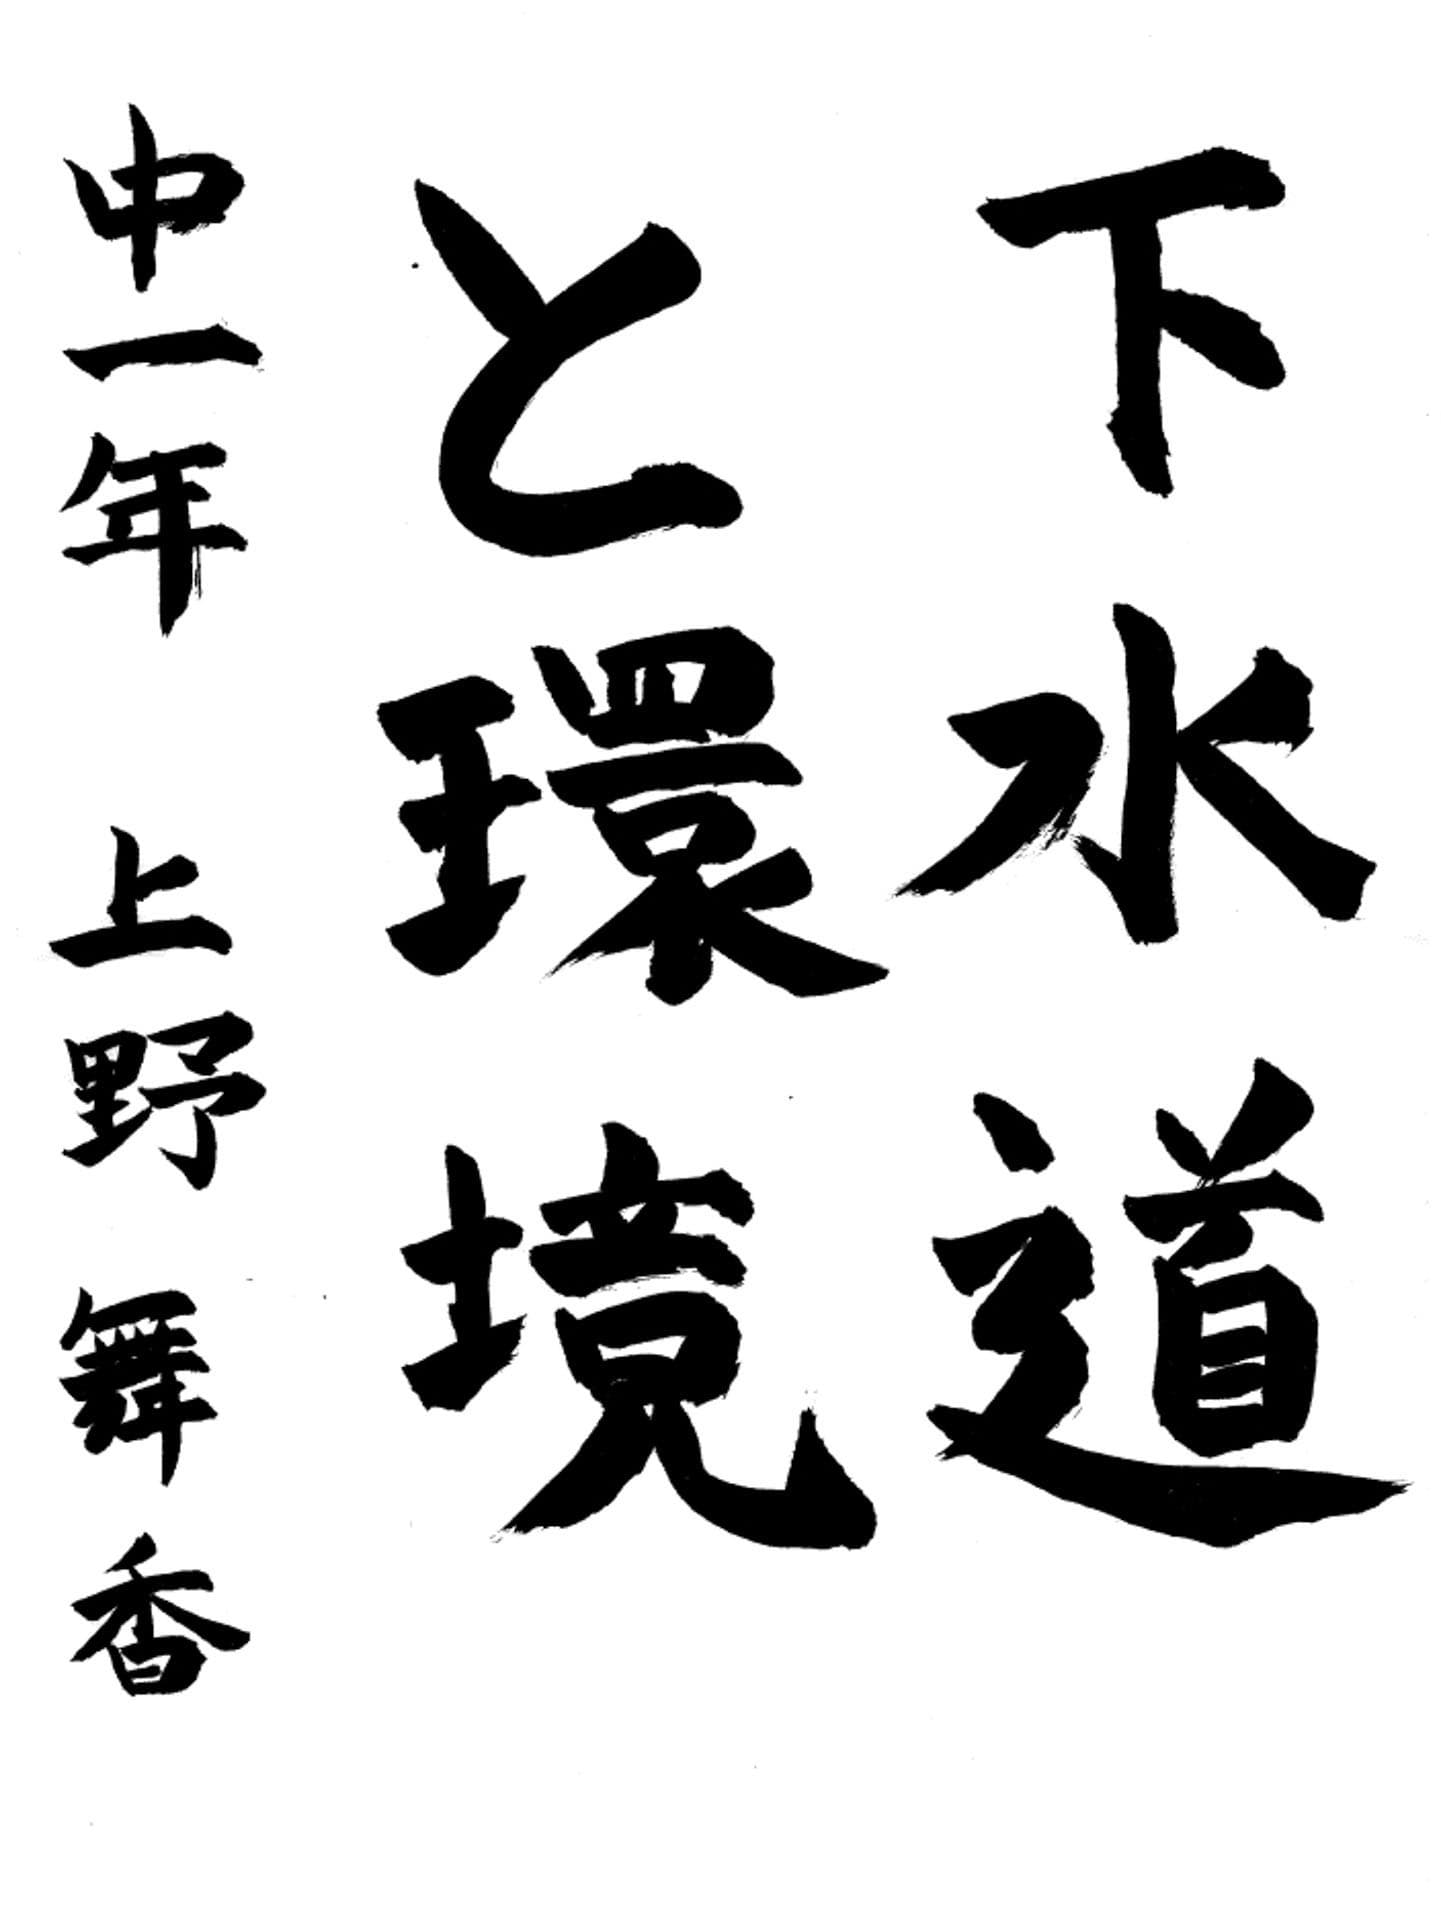 下水道
と環境
中一年 上野舞香